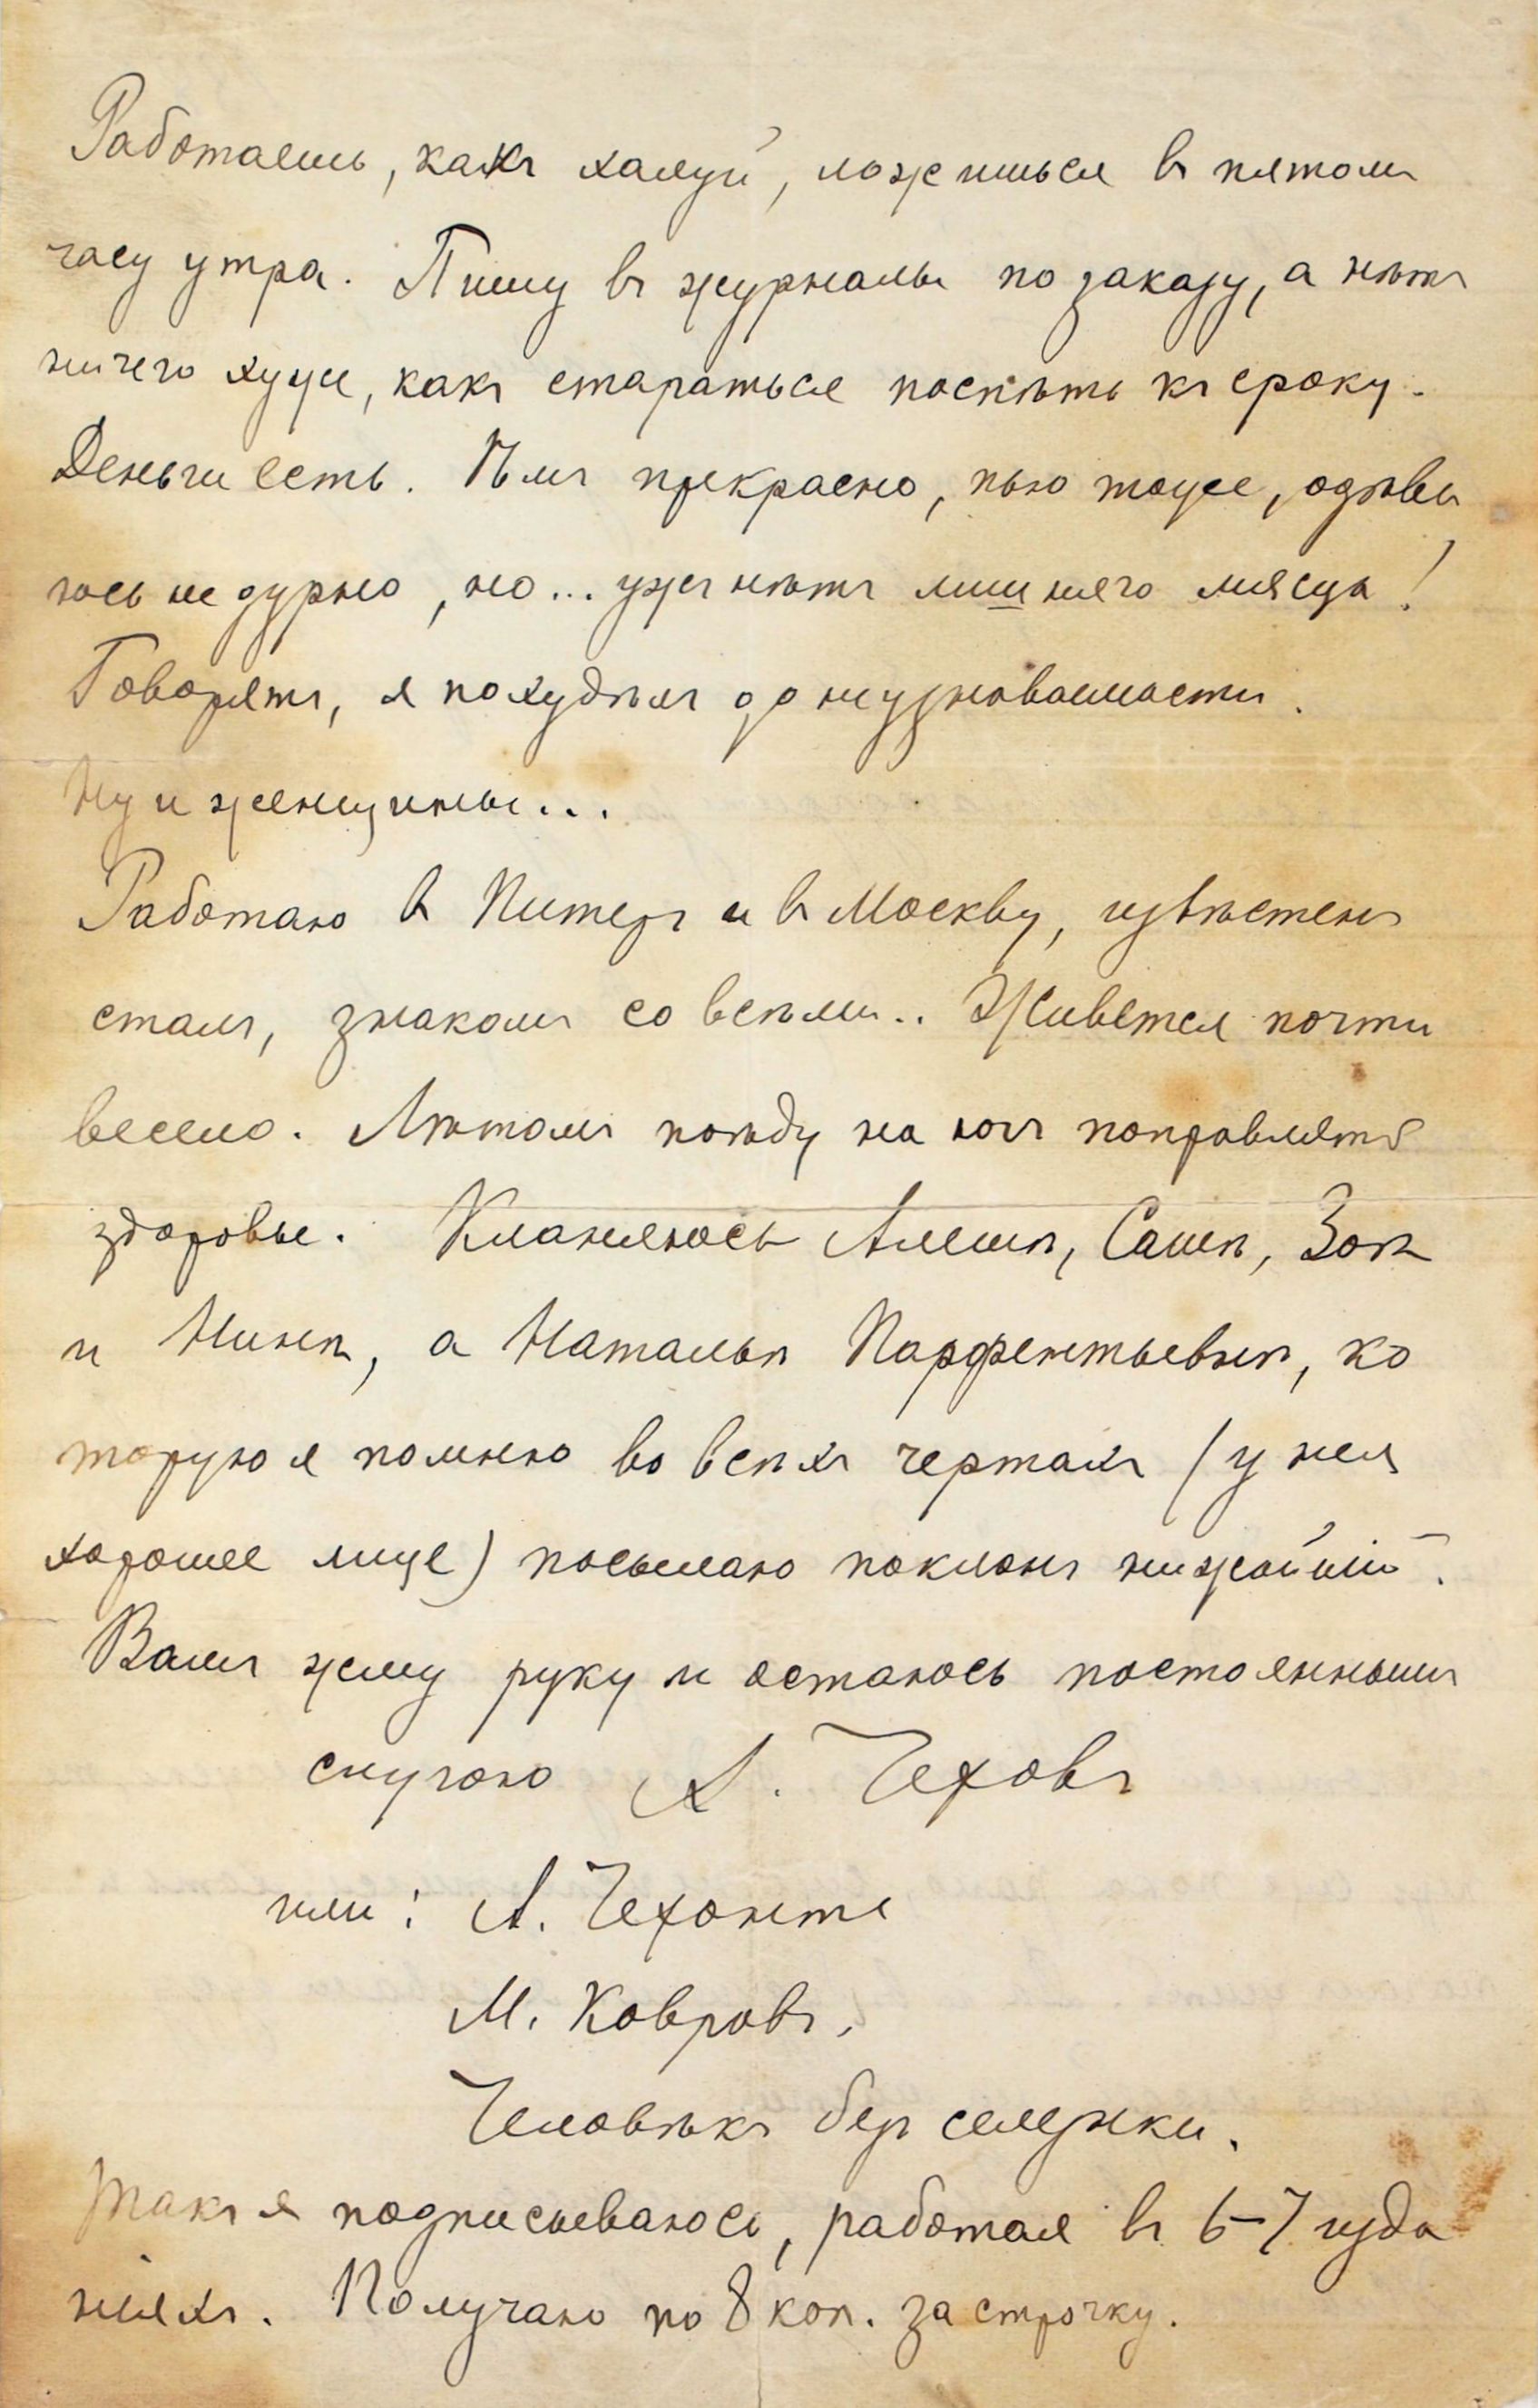 Работаешь, какъ халуй, ложишься въ пятомъ
часу утра. Пишу въ журналы по заказу, а нѣтъ
ничего хуже, какъ стараться поспѣть къ сроку.
Деньги есть. Ѣмъ прекрасно, пью тоже, одѣва
юсь не дурно, но... ужъ нѣтъ лишняго мясца!
Говорятъ, я похудѣлъ до неузноваемости.
Ну и женщины...
Работаю въ Питеръ и въ Москву, извѣстенъ
сталъ, знакомъ со всѣми.. Живется почти
весело. Лѣтомъ поѣду на югъ поправлять
здоровье. Кланяюсь Алешѣ, Сашѣ, Зоѣ
и Нинѣ, а Натальѣ Парфентьевнѣ, ко
торую я помню во всѣхъ чертахъ (у нея
хорошее лице) посылаю поклонъ нижайшій.
Вамъ жму руку и остаюсь постояннымъ
слугою А. Чеховъ
или: А. Чехонте
М. Ковровъ.
Человѣкъ безъ селезенки.
Такъ я подписываюсь, работая въ 6–7 изда
ніяхъ. Получаю по 8 коп. за строчку.